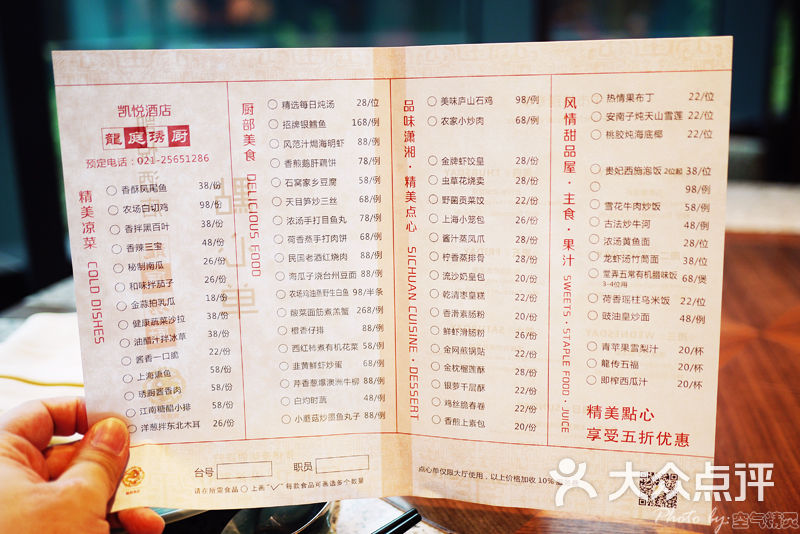 凯悦酒店
龍庭琇厨
预定电话：021-25651286
精美凉菜 COLD DISHES
香酥凤尾鱼 38/份
农场白切鸡 98/例
香拌黑百叶 38/份
香辣三宝 48/份
秘制南瓜 26/份
和味拌茄子 26/份
金蒜拍乳瓜 18/份
健康蔬菜沙拉 38/份
油醋汁拌冰草 38/份
酱香一口脆 22/份
上海熏鱼 58/份
琇厨酱香肉 58/份
江南糖醋小排 58/份
洋葱拌东北木耳 26/份
厨部美食 DELICIOUS FOOD
精选每日炖汤 28/位
招牌银鳕鱼 168/例
风范汁焗海明虾 88/例
香煎鹅肝藕饼 78/例
石窝家乡豆腐 58/例
天目笋炒三丝 58/例
浓汤手打目鱼丸 78/例
荷香蒸手打肉饼 68/例
民国老酒红烧肉 88/例
海瓜子烧台州豆面 88/例
农场鸡油蒸野生白鱼 98/半条
酸菜面筋煮澳蟹 268/例
橙香仔排 88/例
西红柿煮有机花菜 58/例
韭黄鲜虾炒蛋 68/例
芹香葱爆澳洲牛柳 88/例
白灼时蔬 48/例
小蘑菇炒墨鱼丸子 88/例
品味潇湘·精美点心 SICHUAN CUISINE·DESSERT
美味庐山石鸡 98/例
农家小炒肉 68/例
金牌虾饺皇 28/份
虫草花烧卖 28/份
野菌贡菜饺 22/份
上海小笼包 26/份
酱汁蒸凤爪 28/份
柠香蒸排骨 28/份
流沙奶皇包 20/份
乾清枣皇糕 22/份
香滑素肠粉 20/份
鲜虾滑肠粉 26/份
金网煎锅贴 22/份
金枕榴莲酥 26/份
银萝千层酥 22/份
鸡丝脆春卷 22/份
香煎上素包 20/份
风情甜品屋·主食·果汁 SWEETS·STAPLE FOOD·JUICE
热情果布丁 22/位
安南子炖天山雪莲 22/位
桃胶炖海底椰 22/位
贵妃西施泡饭 2位起 38/位
98/例
雪花牛肉炒饭 58/例
古法炒牛河 48/例
浓汤黄鱼面 28/位
龙虾汤竹荪面 38/位
堂弄五常有机腊味饭 68/煲
3-4位用
荷香瑶柱乌米饭 22/位
豉油皇炒面 48/例
青苹果雪梨汁 20/杯
龍传五福 20/杯
即榨西瓜汁 20/杯
精美點心
享受五折优惠
點心单
台号
职员
请在所需食品○上画"✓"每款食品可画选多个数量
点心单仅限大厅使用，以上价格加收10%
大众点评
Photo by: 空气精灵